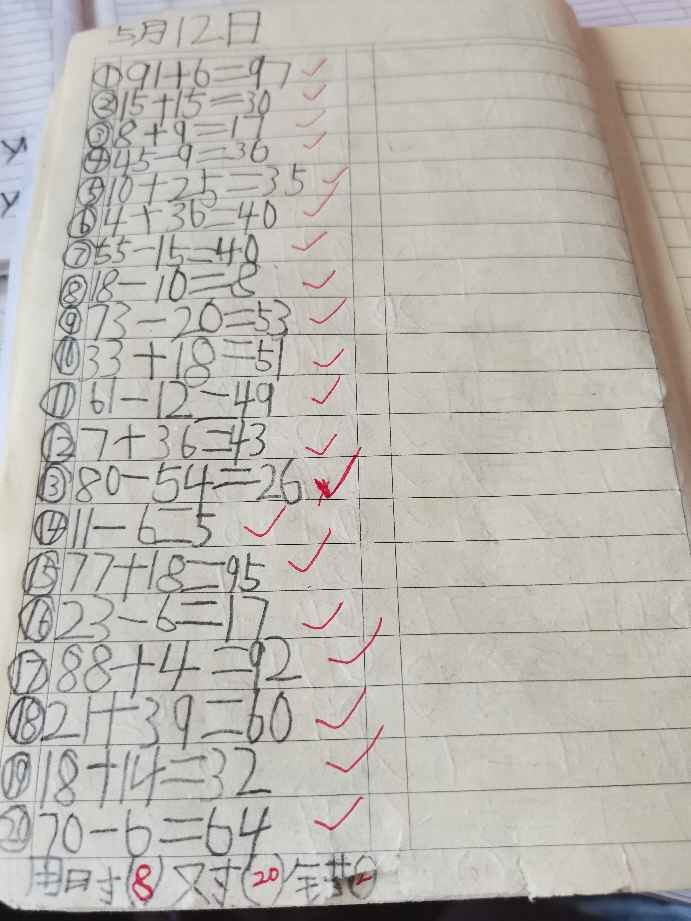 5月12日
①91+6=97
②15+15=30
③8+9=17
④45-9=36
⑤10+25=35
⑥4+36=40
⑦55-15=40
⑧18-10=8
⑨73-20=53
⑩33+18=51
⑪61-12=49
⑫7+36=43
⑬80-54=26
⑭11-6=5
⑮77+18=95
⑯23-6=17
⑰88+4=92
⑱21+39=60
⑲18+14=32
⑳70-6=64
用时(8)对(20)